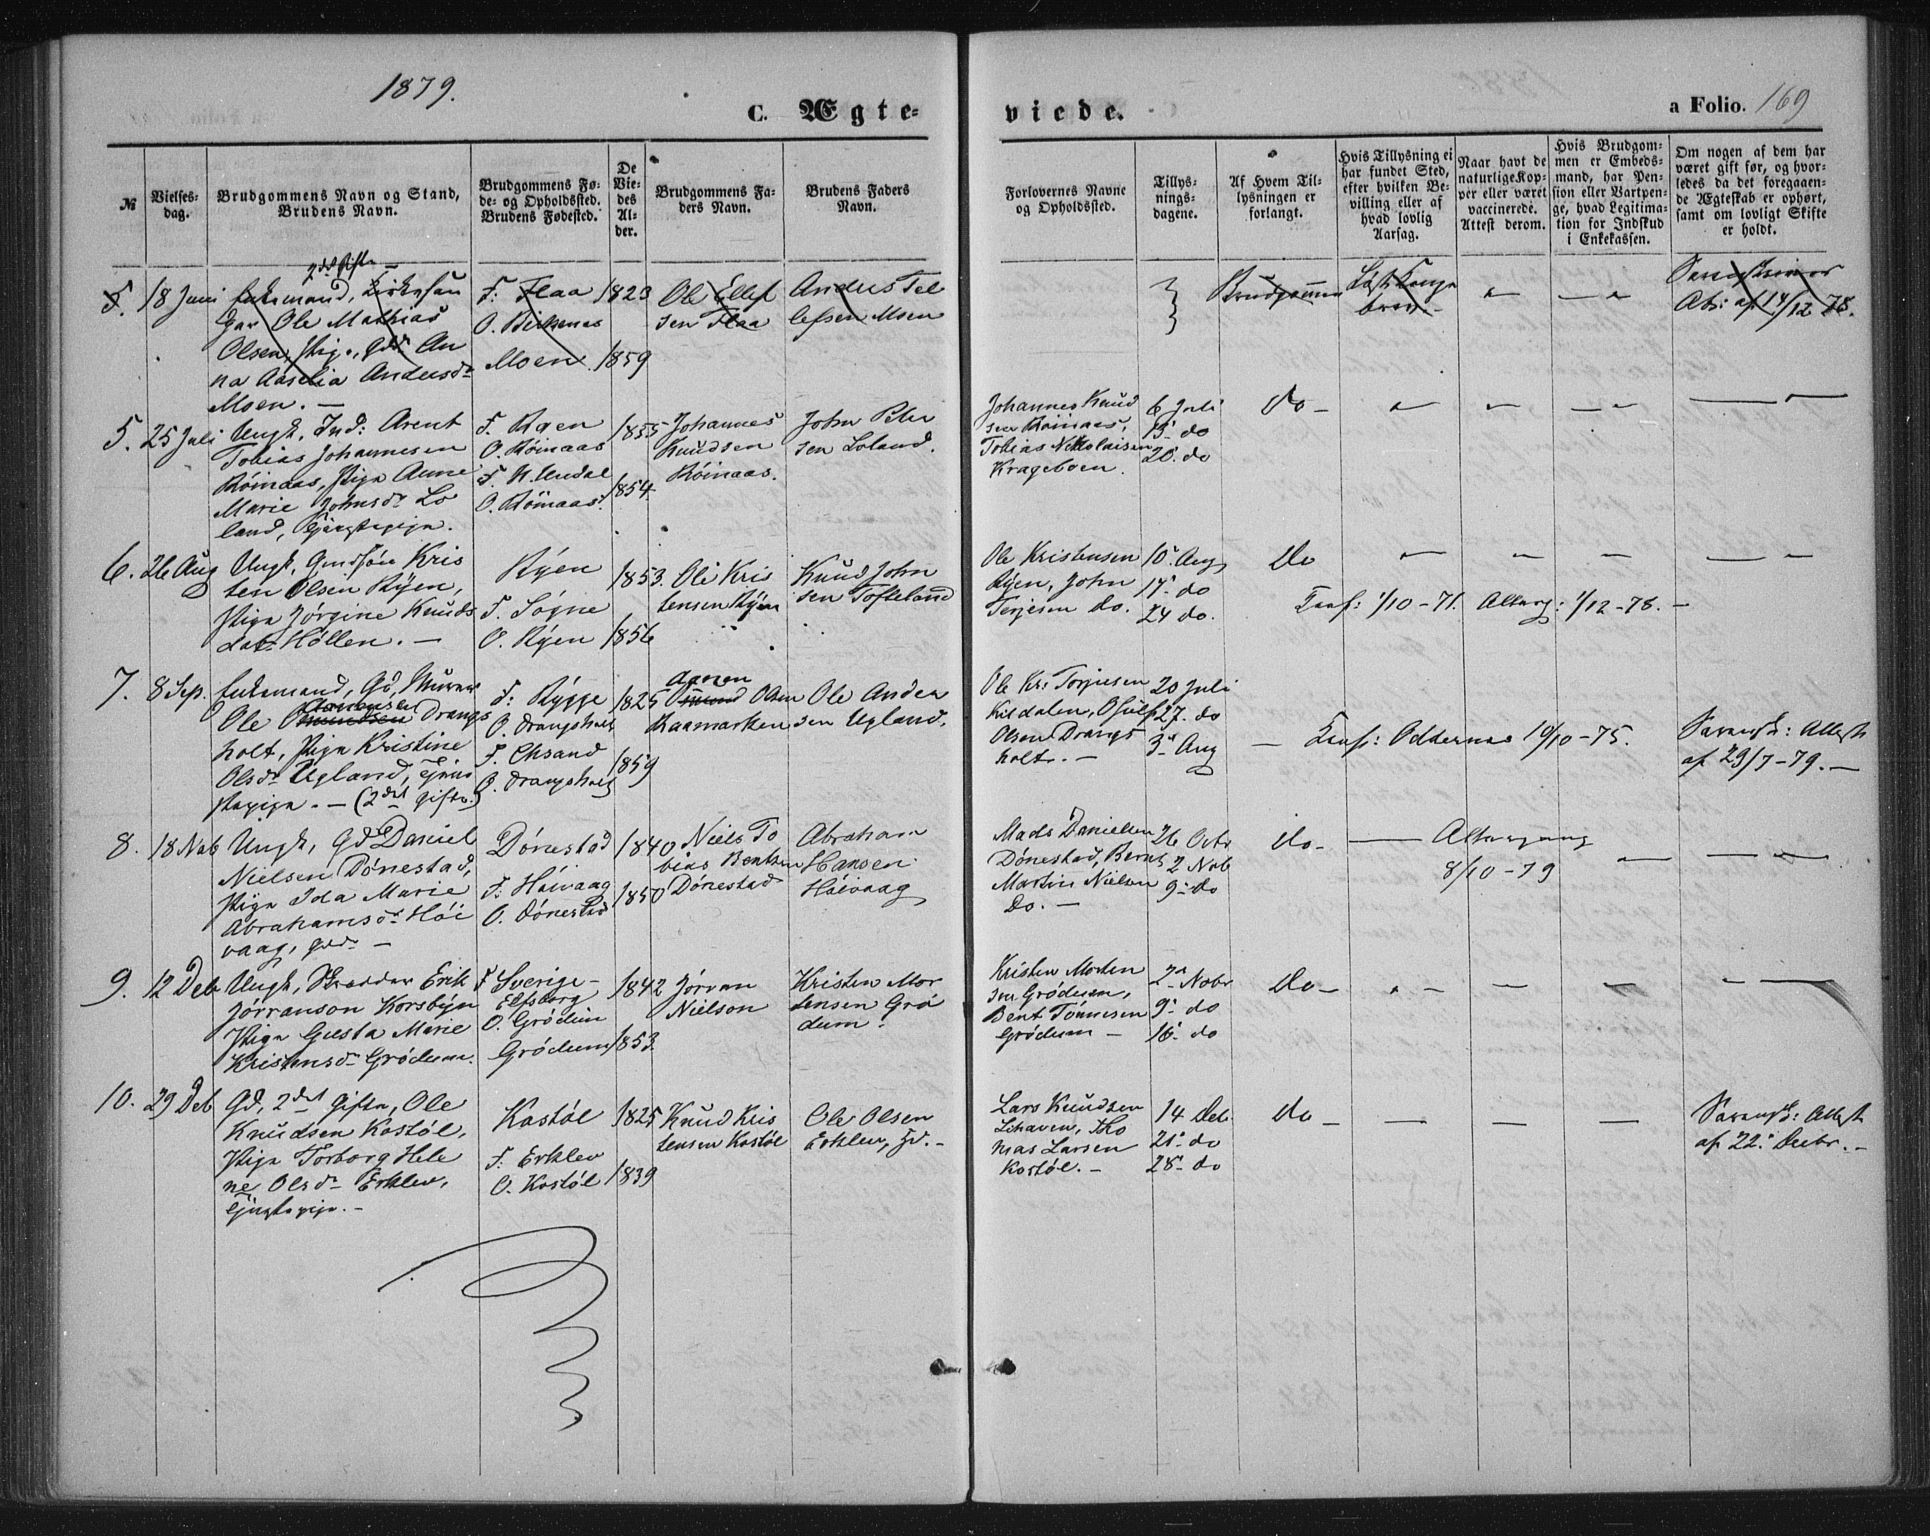 1879.
C. Ægte-
viede.
a Folio. 169
№
Vielses-
dag.
Brudgommens Navn og Stand,
Brudens Navn.
Brudgommens Fø-
de- og Opholdssted.
Brudens Fødested.
De
Vie-
des
Al-
der.
Brudgommens Fa-
ders Navn.
Brudens Faders
Navn.
Forlovernes Navne
og Opholdssted.
Tillys-
nings-
dagene.
Af Hvem Til-
lysningen er
forlangt.
Hvis Tillysning ei
har fundet Sted,
efter hvilken Be-
villing eller af
hvad lovlig
Aarsag.
Naar havt de
naturlige Kop-
per eller været
vaccinerede.
Attest derom.
Hvis Brudgom-
men er Embeds-
mand, har Pen-
sion eller Vartpen-
ge, hvad Legitima-
tion for Indskud
i Enkekassen.
Om nogen af dem har
været gift før, og hvor-
ledes da det foregaaen-
de Ægteskab er ophørt,
samt om lovligt Skifte
er holdt.
5. 18 Juni
2det Gifte
Enkemand, Kirkesan
ger Ole Mathias
Olsen, Pige, Gdd. An
na Aaselia Andersdr
Moen. —
F: Flaa
O. Birkenas
Moen
1823
1859
Ole Ellef
sen Flaa
Anders Tel
lefsen Moen
Brudgommen
Løst Konge
brev. -
Att: af 14/12 78.
5. 25 Juli
Ungk, Ind: Arent
Tobias Johannesen
Röinaas, Pige Anne
Marie Johnsdr Lo
land, Tjenstepige.
F. Röen
O. Röinaas
F. N. Undal
O. Röinaas.
1855
1854
Johannes
Knudsen
Röinaas.
John Peter
sen Loland.
Johannes Knud
sen Röinaas,
Tobias Nikolaisen
Krageboen.
6 Juli
13. do
20. do
Do -
6. 26 Aug
Ungk, Gmdsøn Kris
ten Olsen Ryen,
Pige Jørgine Knuds
datr Höllen. —
Ryen
F. Søgne
O. Ryen
1853.
1856
Ole Kris
tensen Ryen
Knud John
sen Tofteland
Ole Kristensen
Ryen, John
Terjesen do.
10. Aug
17. do
24 do.
Do
Conf: 1/10 - 71. Alterg: 1/12 - 78. -
7. 8 Sep.
Enkemand, Gd, Murer
Aanensen
Ole Omundsen Drangs
holt, Pige Kristine
Olsdr Ugland, Tjens
tepige. — (2det Gifte.)
F. Rygge
O. Drangsholt
F. Ehsand
O. Drangsholt
1825
1859
Aanen
Omund Olsen
Raamarken
Ole Ander
sen Ugland.
Ole Kr: Torjusen
Kildalen, Osuld
Olsen Drangs
holt. —
20 Juli
27. do
3. Aug
— Conf: Oddernes 10/10 - 75.
Sarensk: Attest
af 29/7 - 79. —
8. 18 Nob
Ungk, Gd Daniel
Nielsen Dönestad,
Pige Ida Marie
Abrahamsdr Höi
vaag, Gdr —
Dönestad
F: Höivaag
O. Dönestad
1840
1850
Niels To
bias Bentsen
Dönestad
Abraham
Hansen
Höivaag
Mads Danielsen
Dönestad, Bernt
Martin Nielsen
Do. —
26 Octr
2 Nob
9. do
Do -
— Altergang
8/10 - 79
9. 12 Deb
Ungk, Skrædder Erik
Jörranson Korsbyn
Pige Gusta Marie
Kristensdr Grödum.
F Sverige -
Elfsborg
O. Grödum
Grödum
1842
1853.
Jörran
Nielson
Kristen Mor
tensen Grö
dum.
Kristen Morten
sen Grödum,
Bent Tönnesen
Grödum —
2. Nobr
9. do
16. do
Do -
10. 29 Deb
Gd, 2det Gifte, Ole
Knudsen Kostöl,
Pige Torborg Hele
ne Olsdr Erklev,
Tjenstepige. -
Kostöl
F. Erklev
O. Kostöl
1825
1839
Knud Kris
tensen Kostöl
Ole Olsen
Erklev, Gd. -
Lars Knudsen
Lihaven, Tho
mas Larsen
Kostöl. -
14 Deb.
21. do
28. do
Do
Sarensk: Attest
af 22. Decbr. -